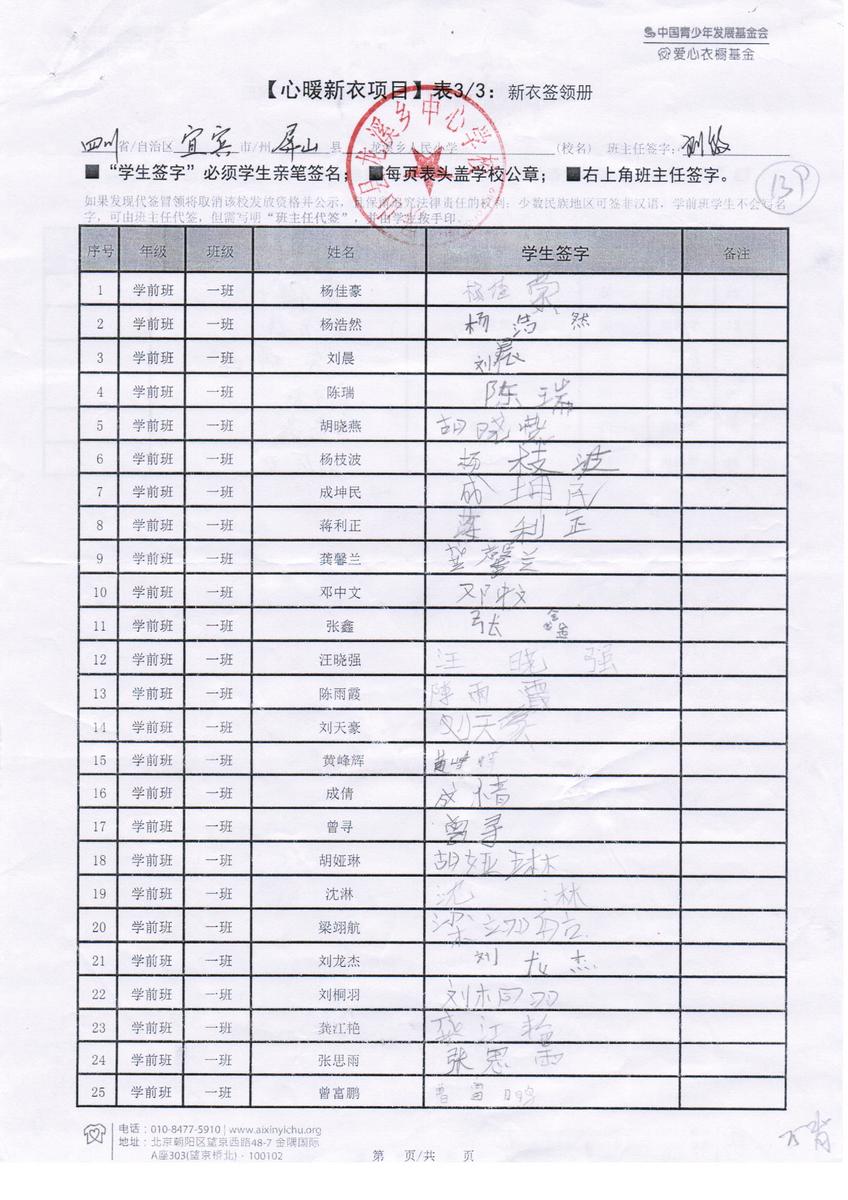 中国青少年发展基金会
爱心衣橱基金
【心暖新衣项目】表3/3：新衣签领册
四川省/自治区 宜宾 市/州 屏山 县 龙溪乡人民小学 (校名) 班主任签字：
■“学生签字”必须学生亲笔签名；■每页表头盖学校公章；■右上角班主任签字。
13P
如果发现代签冒领将取消该校发放资格并公示，且保留追究法律责任的权利；少数民族地区可签非汉语，学前班学生不会写名
字，可由班主任代签，但需写明“班主任代签”，并由学生按手印。
龙溪乡中心学校
序号 年级 班级 姓名 学生签字 备注
1 学前班 一班 杨佳豪 杨佳豪
2 学前班 一班 杨浩然 杨浩然
3 学前班 一班 刘晨 刘晨
4 学前班 一班 陈瑞 陈瑞
5 学前班 一班 胡晓燕 胡晓燕
6 学前班 一班 杨枝波 杨枝波
7 学前班 一班 成坤民 成坤民
8 学前班 一班 蒋利正 蒋利正
9 学前班 一班 龚馨兰 龚馨兰
10 学前班 一班 邓中文 邓中文
11 学前班 一班 张鑫 张鑫
12 学前班 一班 汪晓强 汪晓强
13 学前班 一班 陈雨霞 陈雨霞
14 学前班 一班 刘天豪 刘天豪
15 学前班 一班 黄峰辉 黄峰辉
16 学前班 一班 成倩 成倩
17 学前班 一班 曾寻 曾寻
18 学前班 一班 胡娅琳 胡娅琳
19 学前班 一班 沈淋 沈淋
20 学前班 一班 梁翊航 梁翊航
21 学前班 一班 刘龙杰 刘龙杰
22 学前班 一班 刘桐羽 刘桐羽
23 学前班 一班 龚江艳 龚江艳
24 学前班 一班 张思雨 张思雨
25 学前班 一班 曾富鹏 曾富鹏
电话：010-8477-5910 | www.aixinyichu.org
地址：北京朝阳区望京西路48-7 金隅国际
A座303(望京桥北) · 100102
第 页/共 页